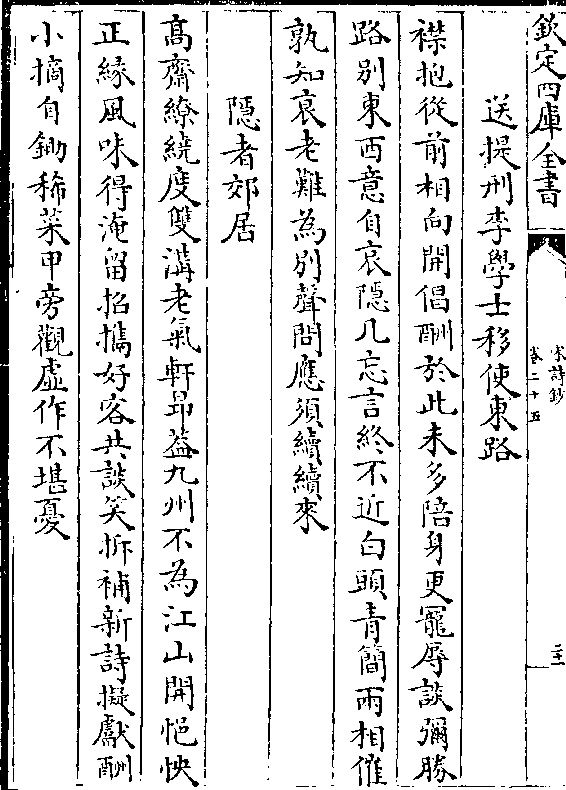 欽定四庫全書
宋詩鈔
卷二十五
二十一
送提刑李學士移使東路
襟抱從前相向開倡酬於此未多陪身更寵辱談彌勝
路別東西意自哀隠几忘言終不近白頭青簡兩相催
孰知衰老難為別聲問應須續續來
隠者郊居
髙齋繚繞度雙溝老氣軒昂葢九州不為江山開悒怏
正緣風味得淹留招攜好客共談笑拆補新詩擬獻酬
小摘自鋤稀菜甲旁觀虛作不堪憂